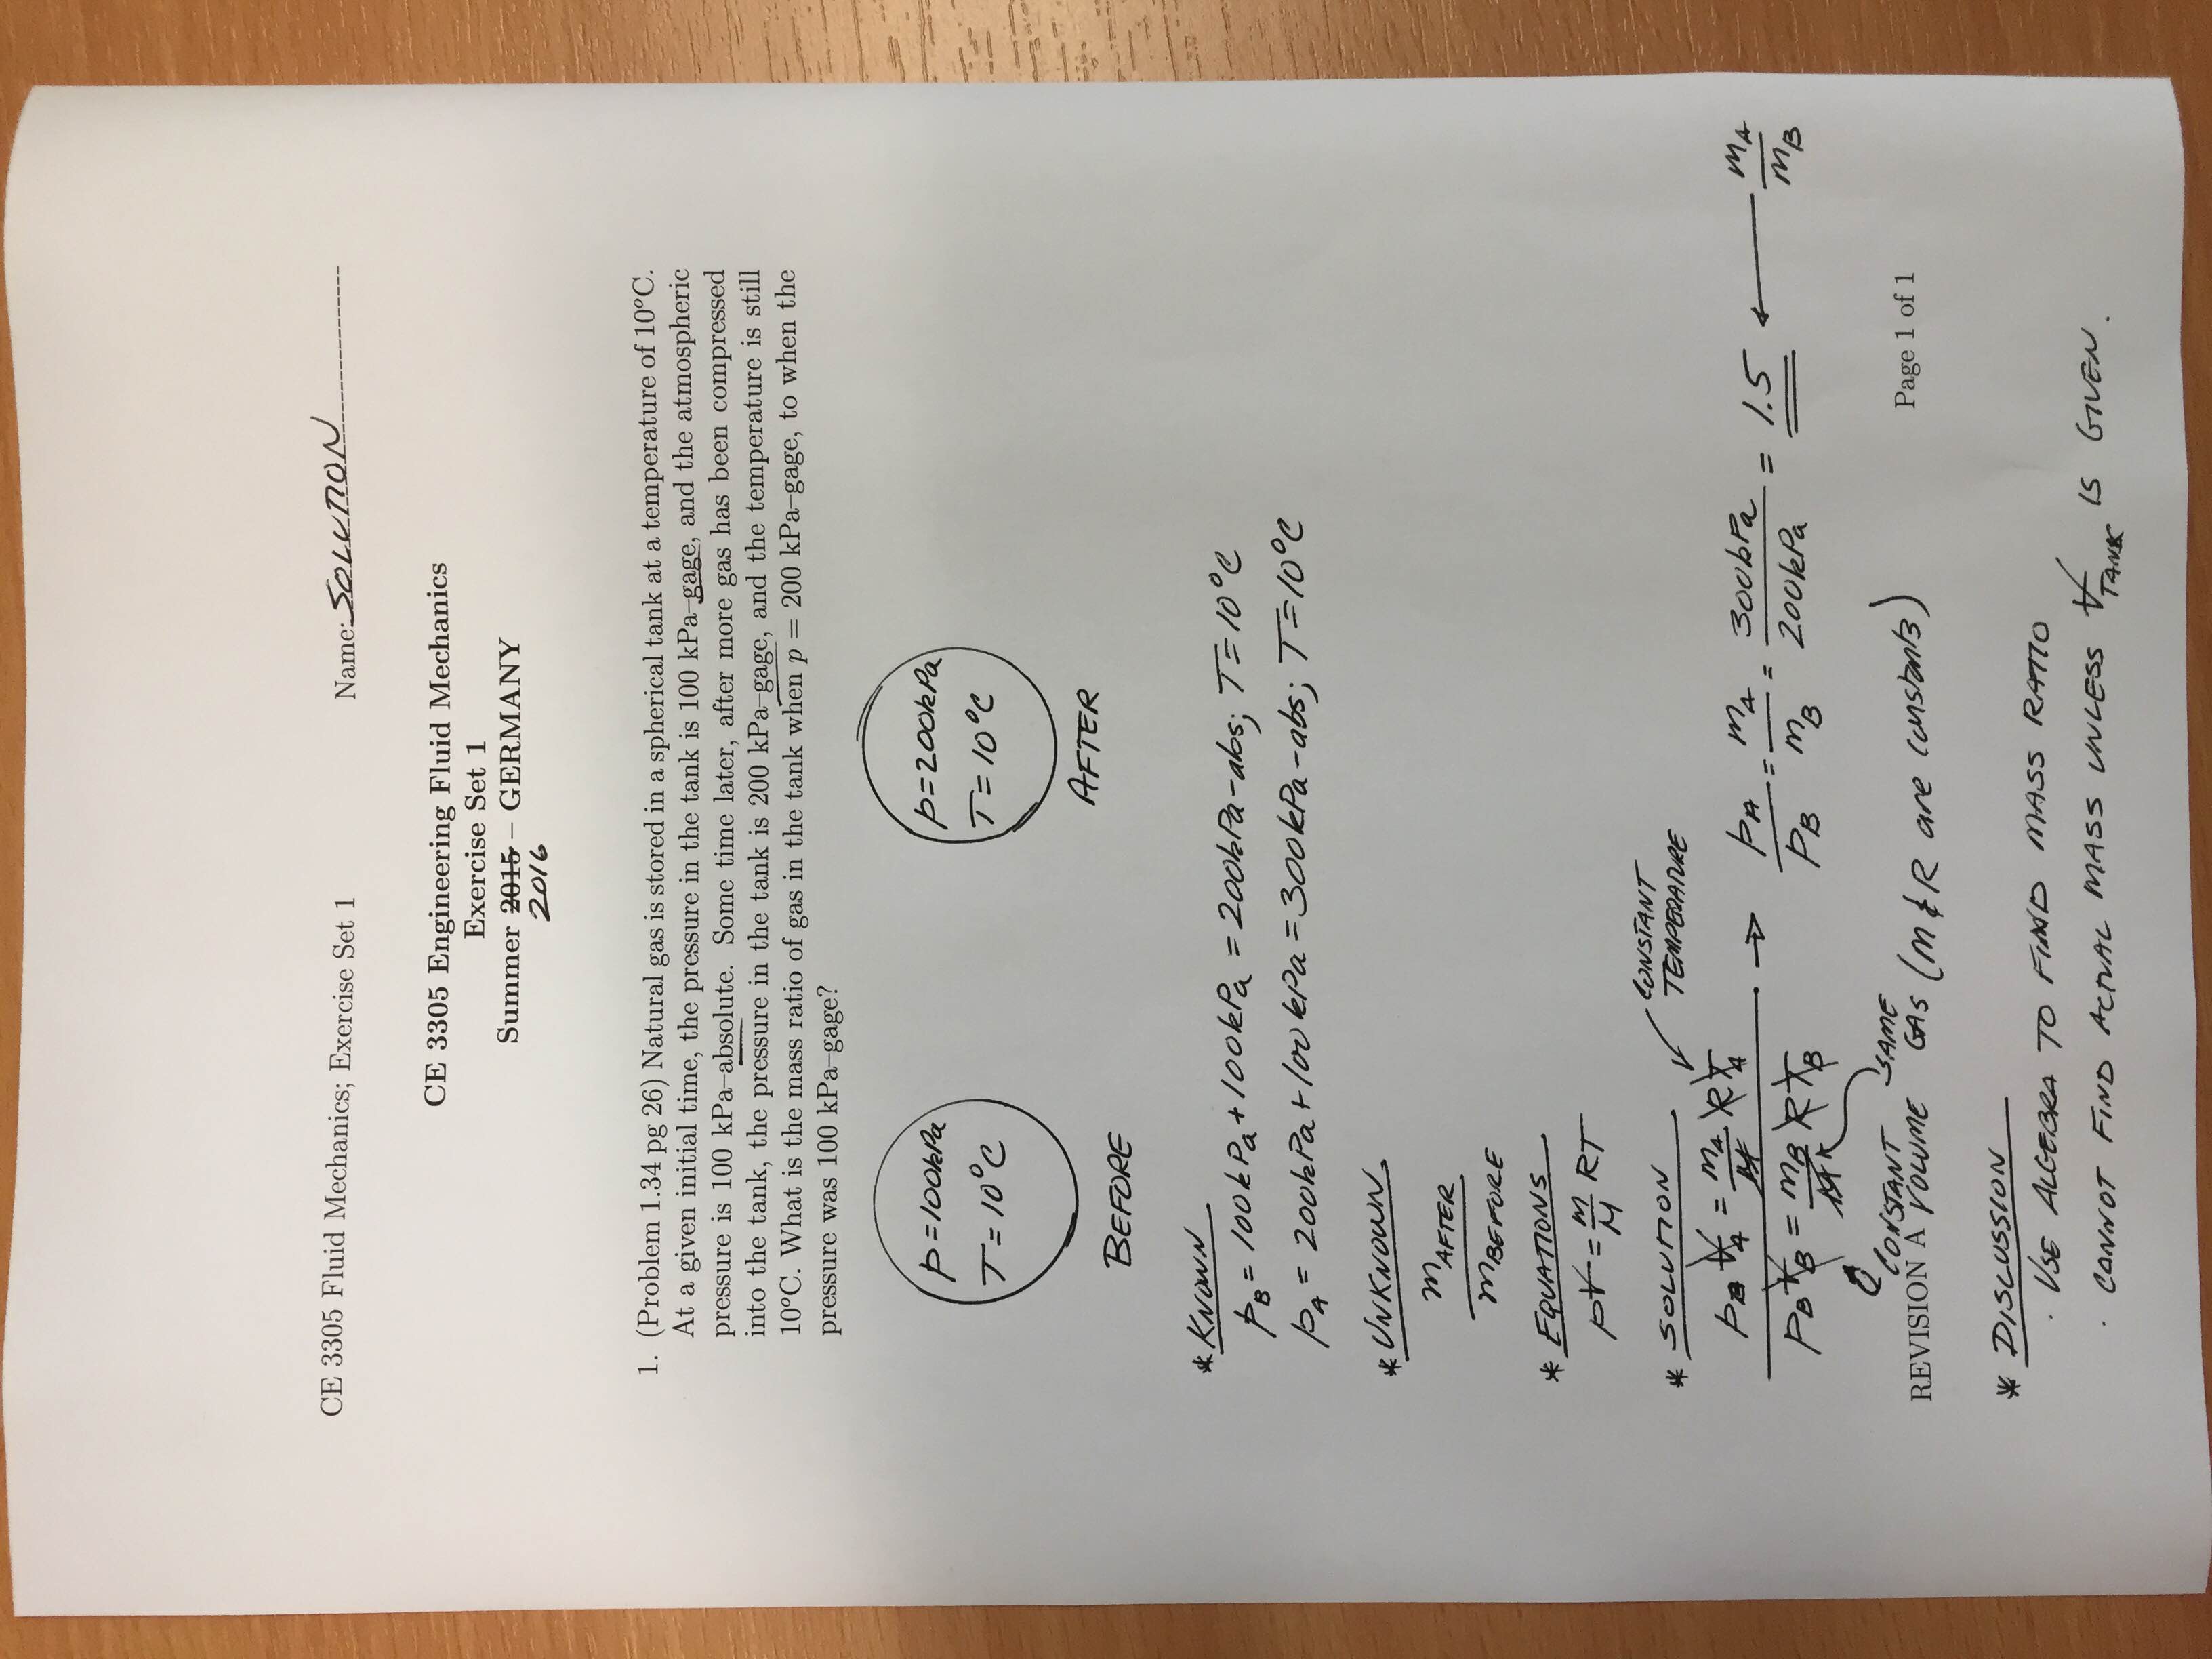 CE 3305 Fluid Mechanics; Exercise Set 1 Name: SOLUTION
CE 3305 Engineering Fluid Mechanics
Exercise Set 1
Summer 2015 – GERMANY
2016
1. (Problem 1.34 pg 26) Natural gas is stored in a spherical tank at a temperature of 10°C.
At a given initial time, the pressure in the tank is 100 kPa–gage, and the atmospheric
pressure is 100 kPa–absolute. Some time later, after more gas has been compressed
into the tank, the pressure in the tank is 200 kPa–gage, and the temperature is still
10°C. What is the mass ratio of gas in the tank when p = 200 kPa–gage, to when the
pressure was 100 kPa–gage?
p=100kPa
T=10°C
BEFORE
p=200kPa
T=10°C
AFTER
* KNOWN
pB = 100kPa + 100kPa = 200kPa-abs; T=10°C
pA = 200kPa + 100kPa = 300kPa-abs; T=10°C
* UNKNOWN
mAFTER
mBEFORE
* EQUATIONS
pV = m/M RT
* SOLUTION
CONSTANT
TEMPERATURE
pA VA = mA/M RTA
pB VB = mB/M RTB
→ pA/pB = mA/mB = 300kPa/200kPa = 1.5 ← mA/mB
CONSTANT
VOLUME
SAME
GAS (M & R are constants)
REVISION A Page 1 of 1
* DISCUSSION
· USE ALGEBRA TO FIND MASS RATIO
· CANNOT FIND ACTUAL MASS UNLESS VTANK IS GIVEN.